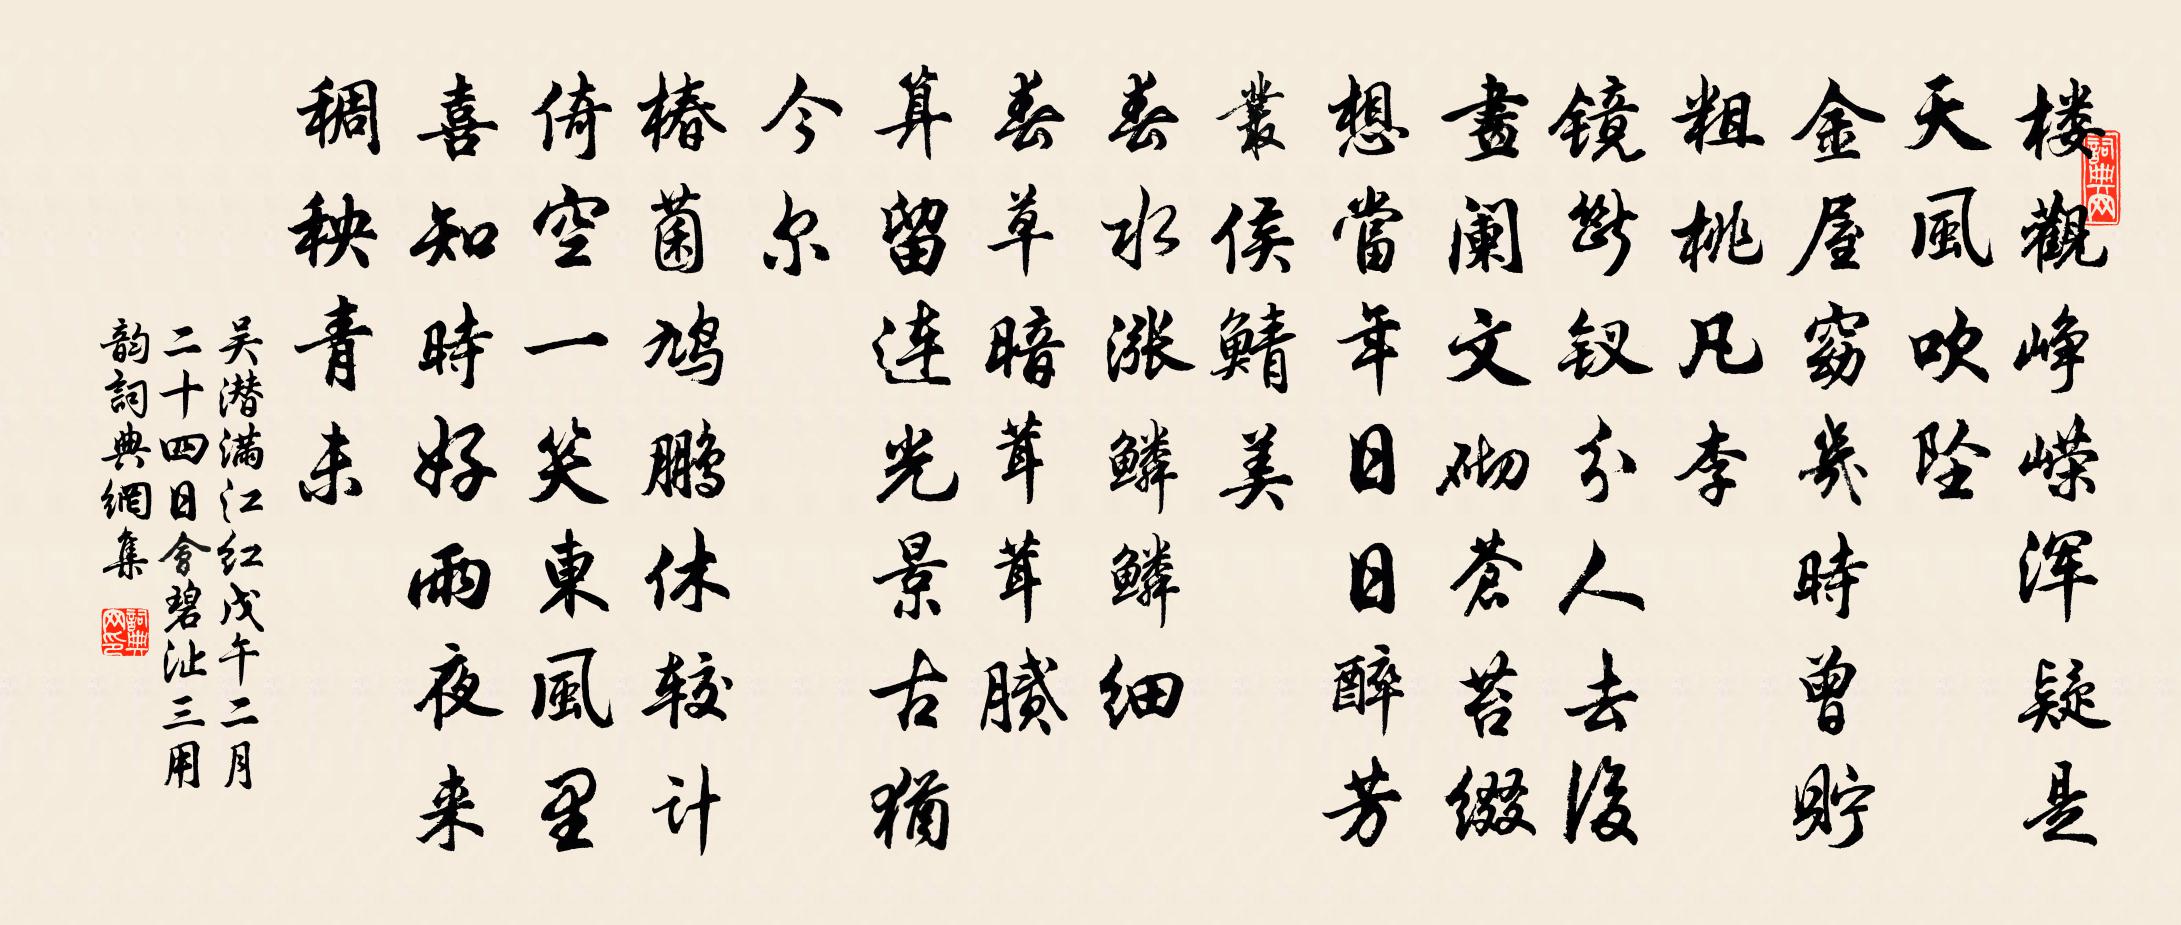 楼觀峥嵘浑疑是
天風吹坠
金屋窈幾時曾貯
粗桃凡李
镜斷钗分人去後
畫阑文砌蒼苔缀
想當年日日醉芳
叢侯鯖美
春水漲鳞鳞细
春草暗茸茸腻
算留连光景古猶
今尔
椿菌鸠鹏休较计
倚空一笑東風里
喜知時好雨夜来
稠秧青未
吴潜满江红戊午二月
二十四日會碧沚三用
韵詞典網集
詞典网
詞典网印